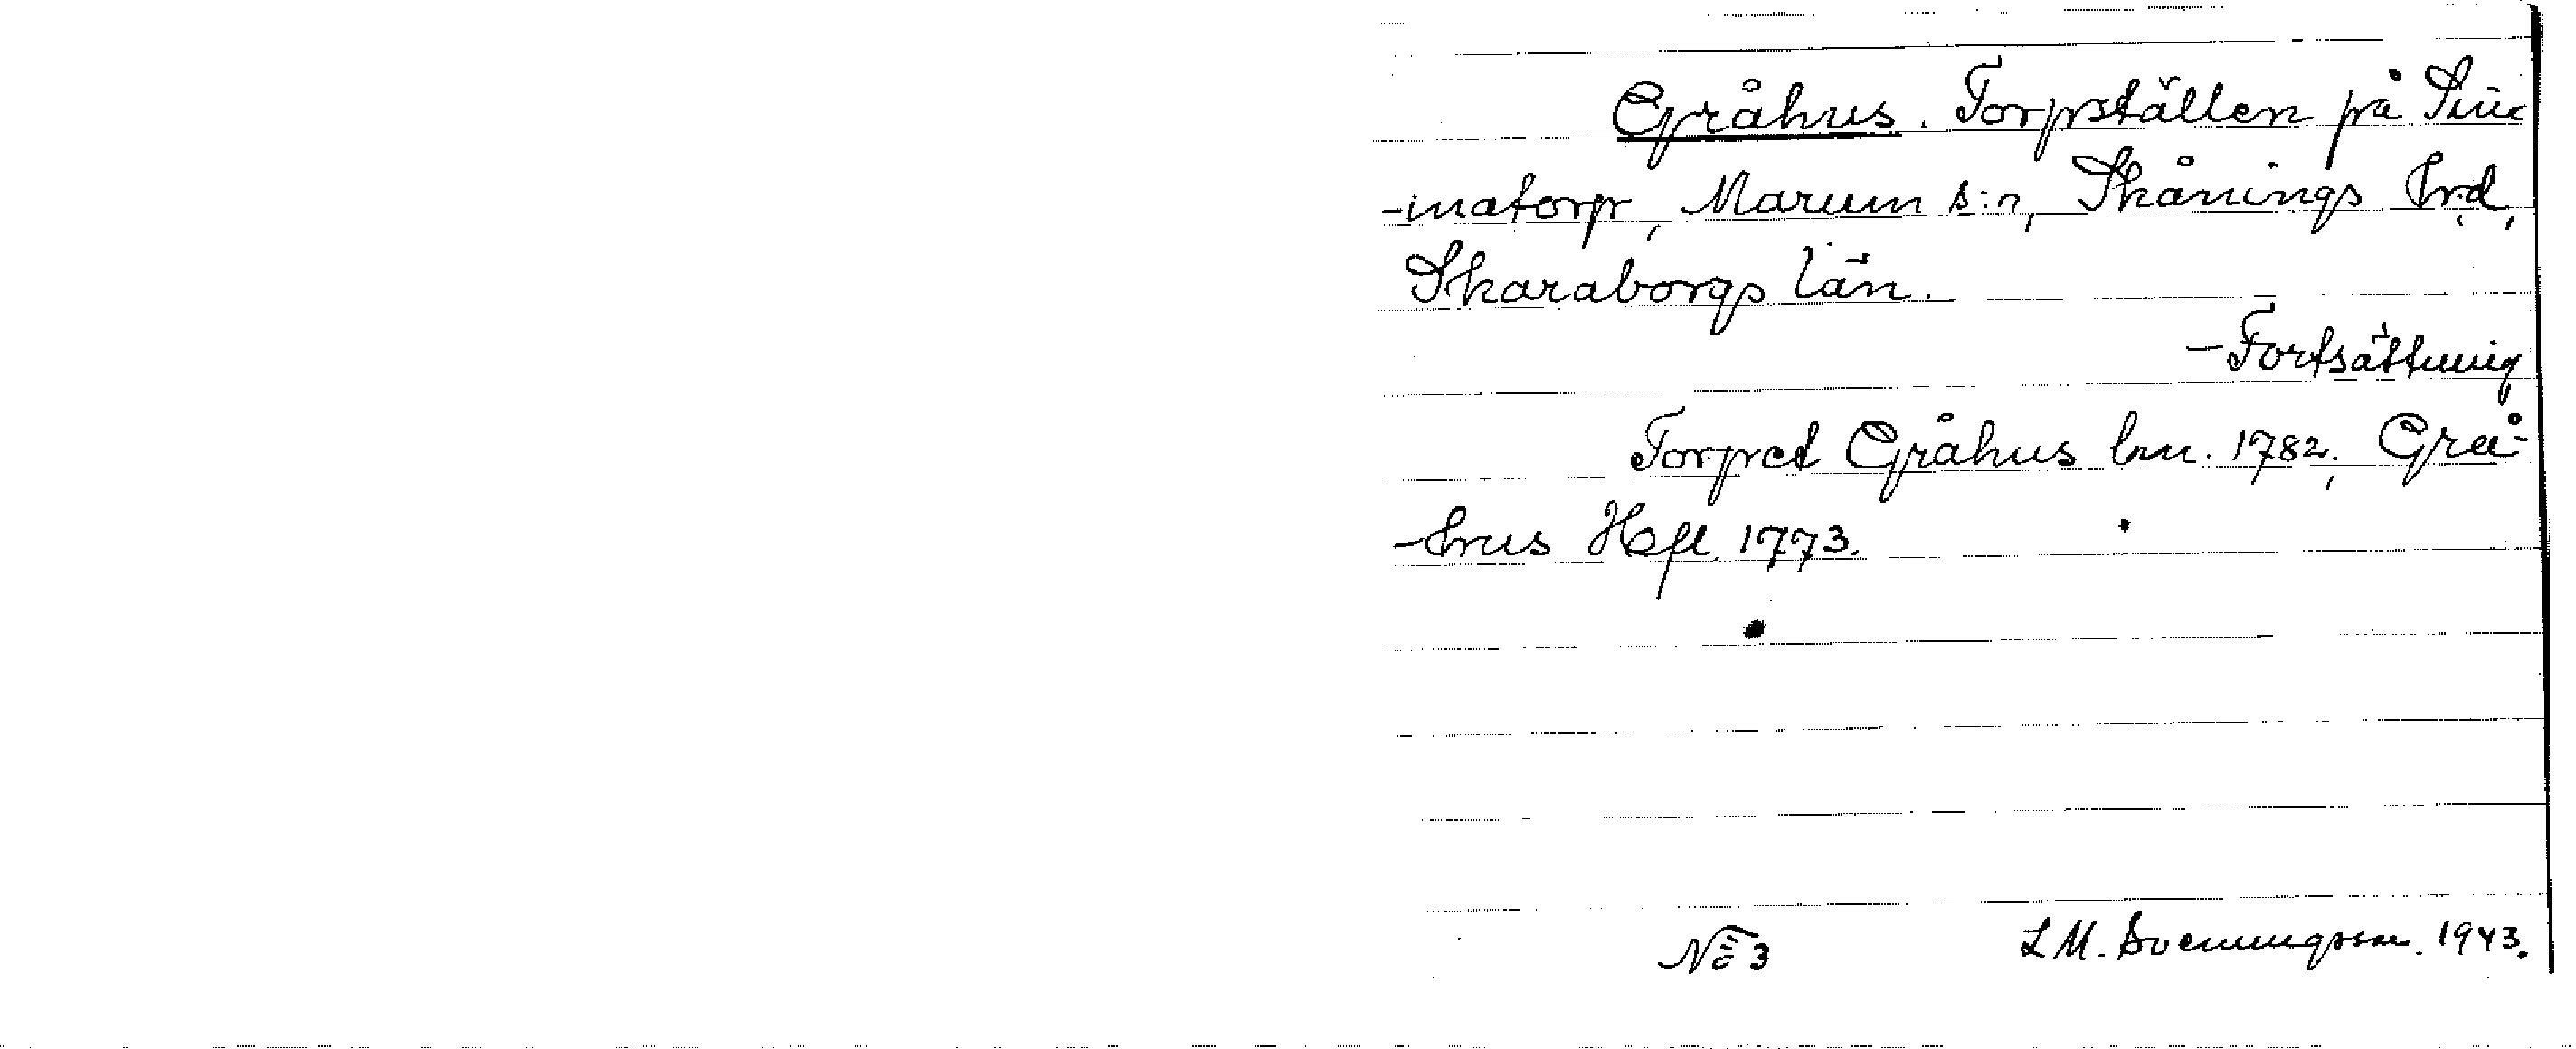 Gråhus. Torpställen på Sim
-matorp, Marum s:n, Skånings hrd,
Skaraborgs län.
-Fortsättning
Torpet Gråhus lm. 1782, Grå-
-hus Hfl. 1773.
No 3 LM. Svenungsson. 1943.